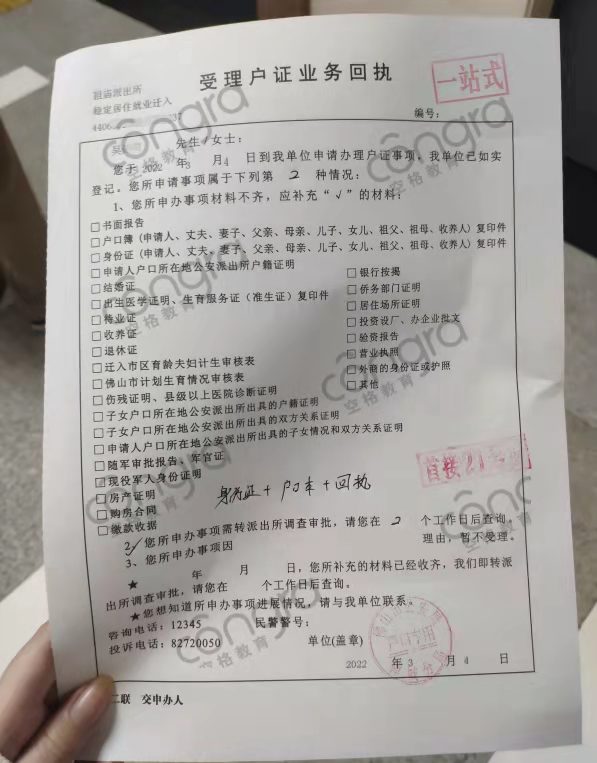 受理户证业务回执
一站式
祖庙派出所
稳定居住就业迁入
4406
编号：
先生/女士：
您于 2022 年3 月4 日到我单位申请办理户证事项，我单位已如实
登记。您所申请事项属于下列第 2 种情况：
1、您所申办事项材料不齐，应补充“√”的材料：
□书面报告
□户口簿（申请人、丈夫、妻子、父亲、母亲、儿子、女儿、祖父、祖母、收养人）复印件
□身份证（申请人、丈夫、妻子、父亲、母亲、儿子、女儿、祖父、祖母、收养人）复印件
□申请人户口所在地公安派出所户籍证明
□结婚证
□出生医学证明、生育服务证（准生证）复印件
□待业证
□收养证
□退休证
□迁入市区育龄夫妇计生审核表
□佛山市计划生育情况审核表
□伤残证明、县级以上医院诊断证明
□银行按揭
□侨务部门证明
□居住场所证明
□投资设厂、办企业批文
□验资报告
□营业执照
□外商的身份证或护照
□其他
□子女户口所在地公安派出所出具的户籍证明
□子女户口所在地公安派出所出具的双方关系证明
□申请人户口所在地公安派出所出具的子女情况和双方关系证明
□随军审批报告、军官证
□现役军人身份证明
□房产证明
□购房合同
□缴款收据
身份证+户口本+回执
2、您所申办事项需转派出所调查审批，请您在 2 个工作日后查询。
3、您所申办事项因 理由，暂不受理。
★ 年 月 日，您所补充的材料已经收齐，我们即转派
出所调查审批，请您在 个工作日后查询。
★您想知道所申办事项进展情况，请与我单位联系。
咨询电话：12345 民警警号：
投诉电话：82720050 单位(盖章)
户口专用
2022 年 3 月 4 日
二联 交申办人
congra
空格教育
congra
空格教育
congra
空格教育
congra
空格教育
congra
空格教育
congra
空格教育
congra
空格教育